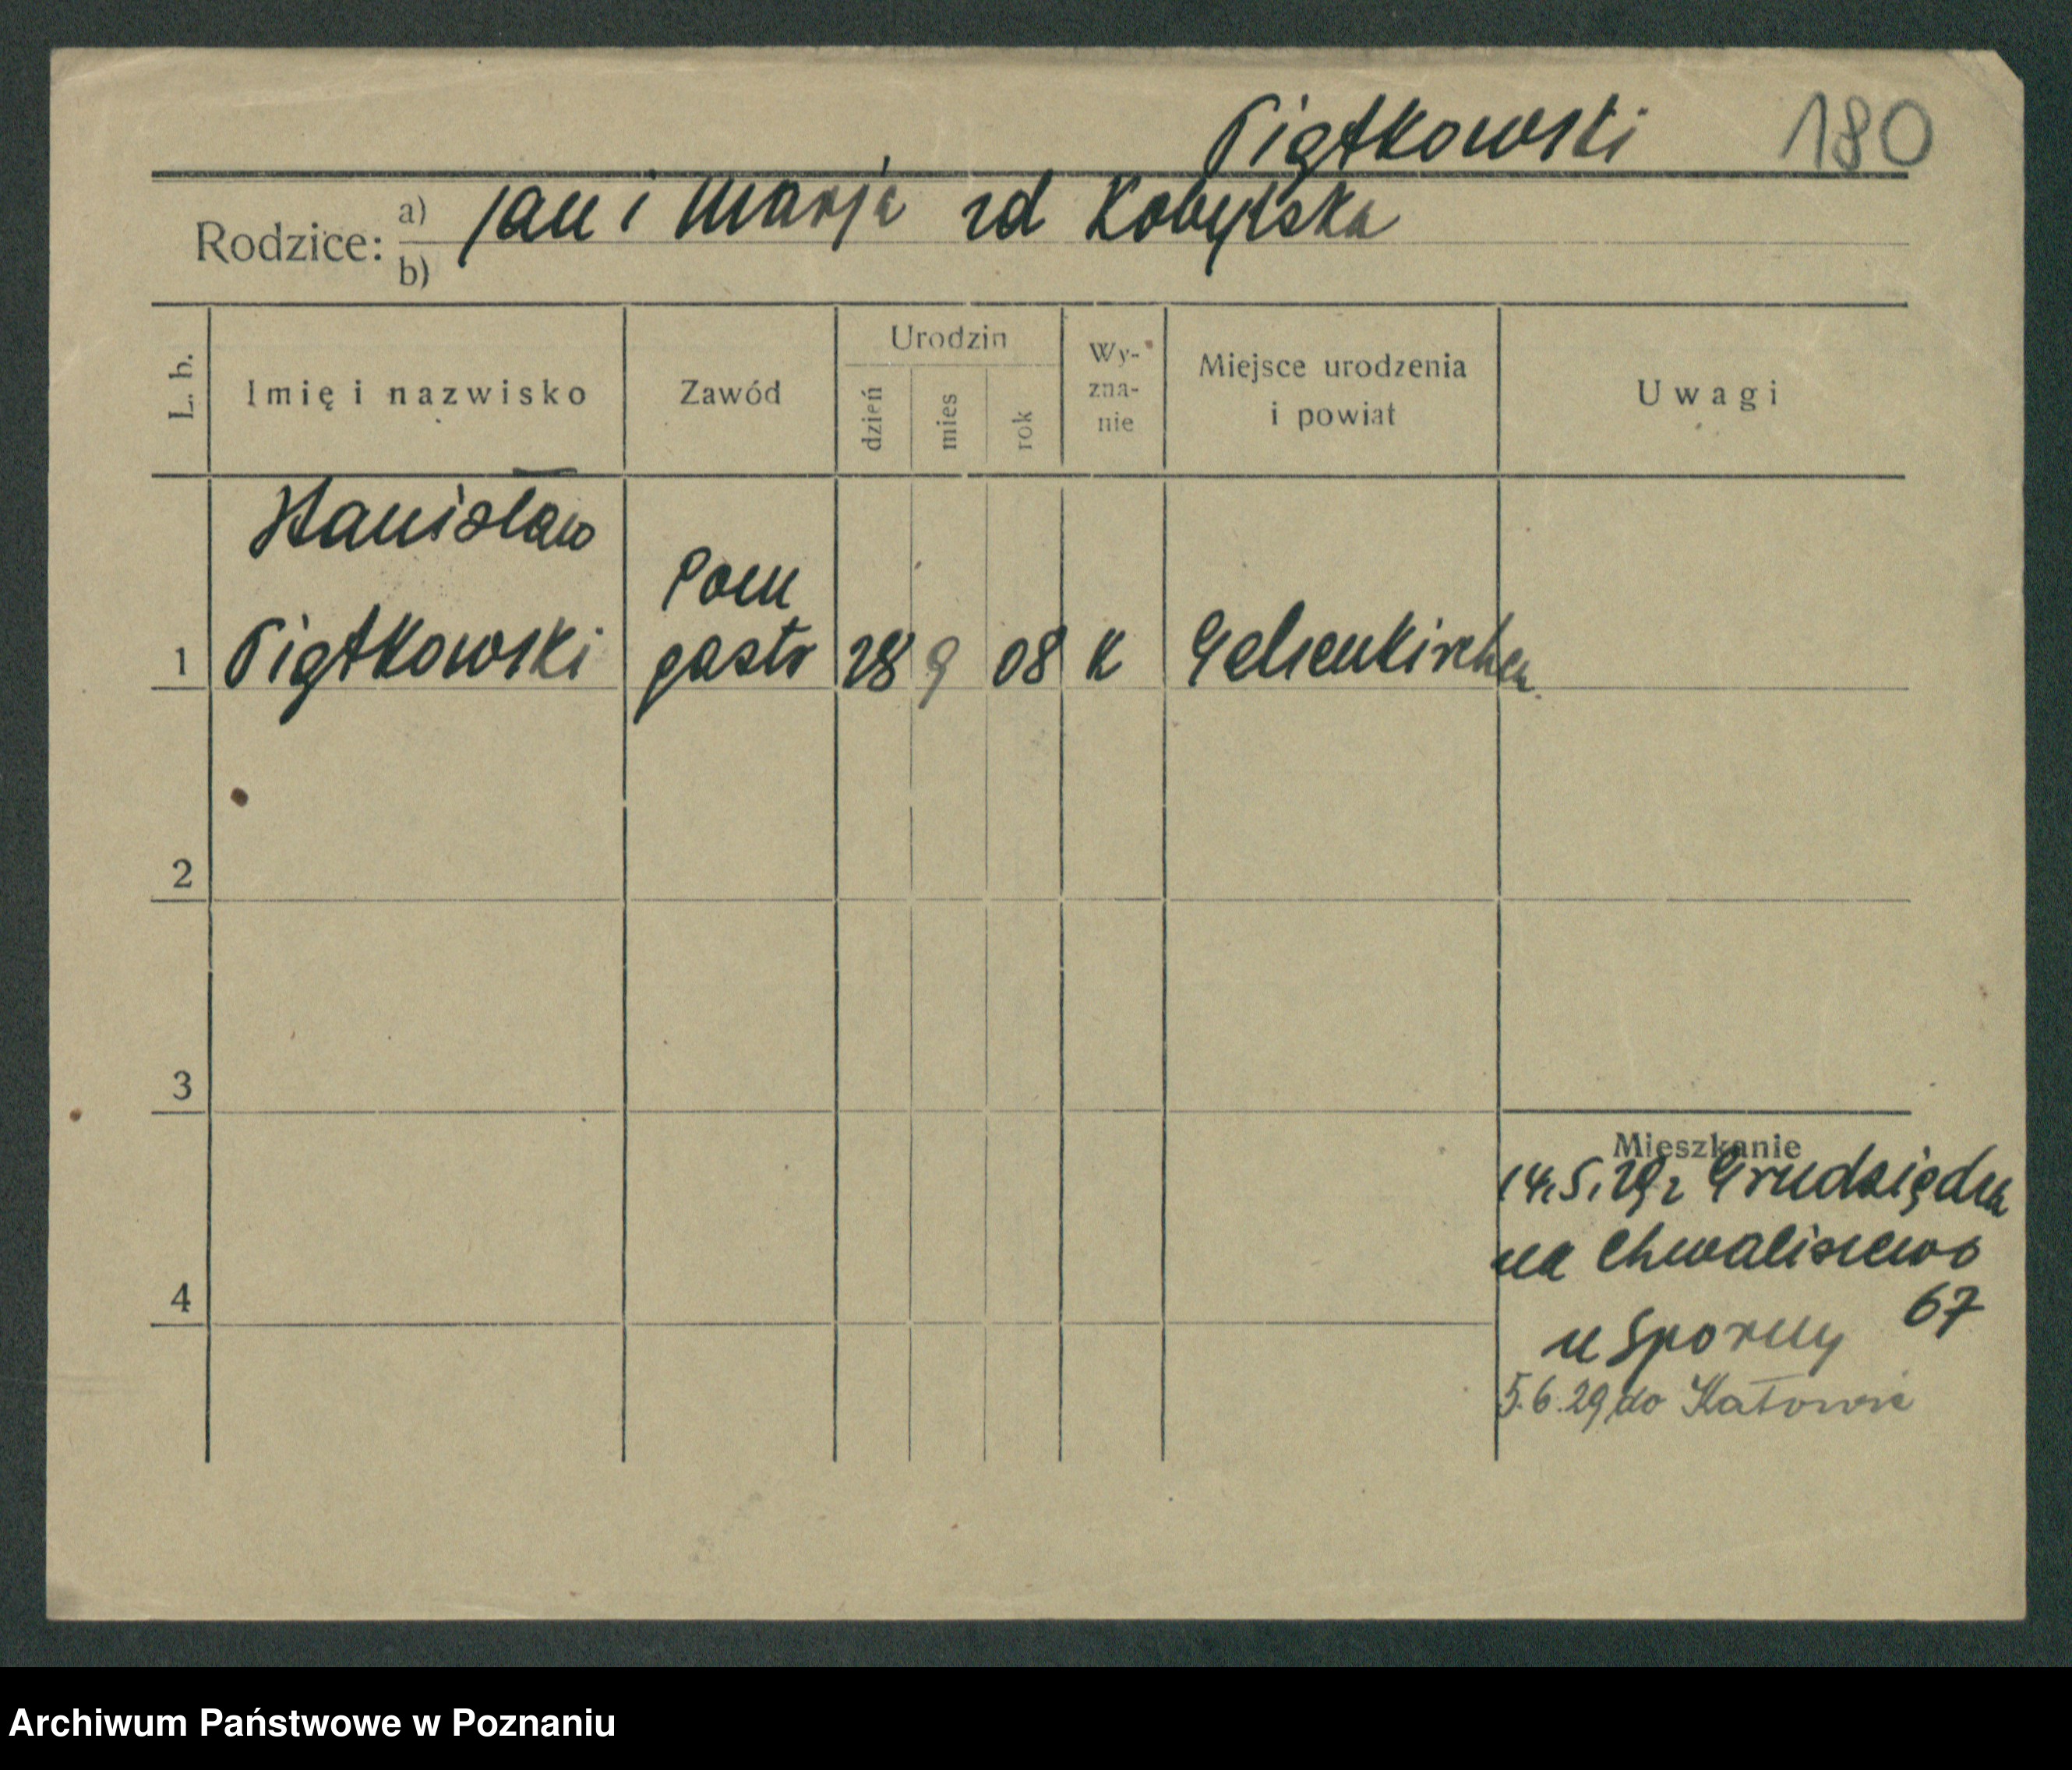 Piątkowski 180
Rodzice: a) Jan i Marja zd Kobylska
b)
L. b.
Imię i nazwisko
Zawód
Urodzin
dzień
mies
rok
Wy-
zna-
nie
Miejsce urodzenia
i powiat
Uwagi
Stanisław
Pom
1 Piątkowski gastr 28 9 08 K Gelsenkirchen.
2
3
4
Mieszkanie
14.5.29 z Grudziądza
na Chwaliszewo
67
u Sporny
5.6.29 do Katowic
Archiwum Państwowe w Poznaniu